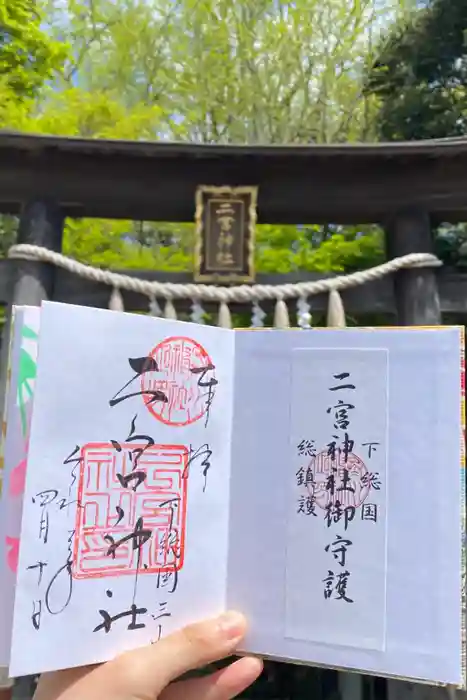 二宮神社
奉拝
二宮神社
下総国三山
四月十日
下総国
二宮神社御守護
総鎮護